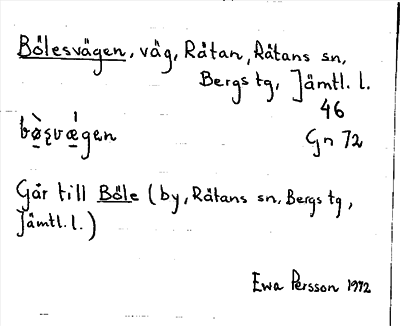 Bölesvägen, väg, Råtan, Råtans sn,
Bergs tg, Jämtl. l.
46
bø̀ʂvǽgen
Gn 72
Går till Böle (by, Råtans sn, Bergs tg,
Jämtl. l.)
Ewa Persson 1972